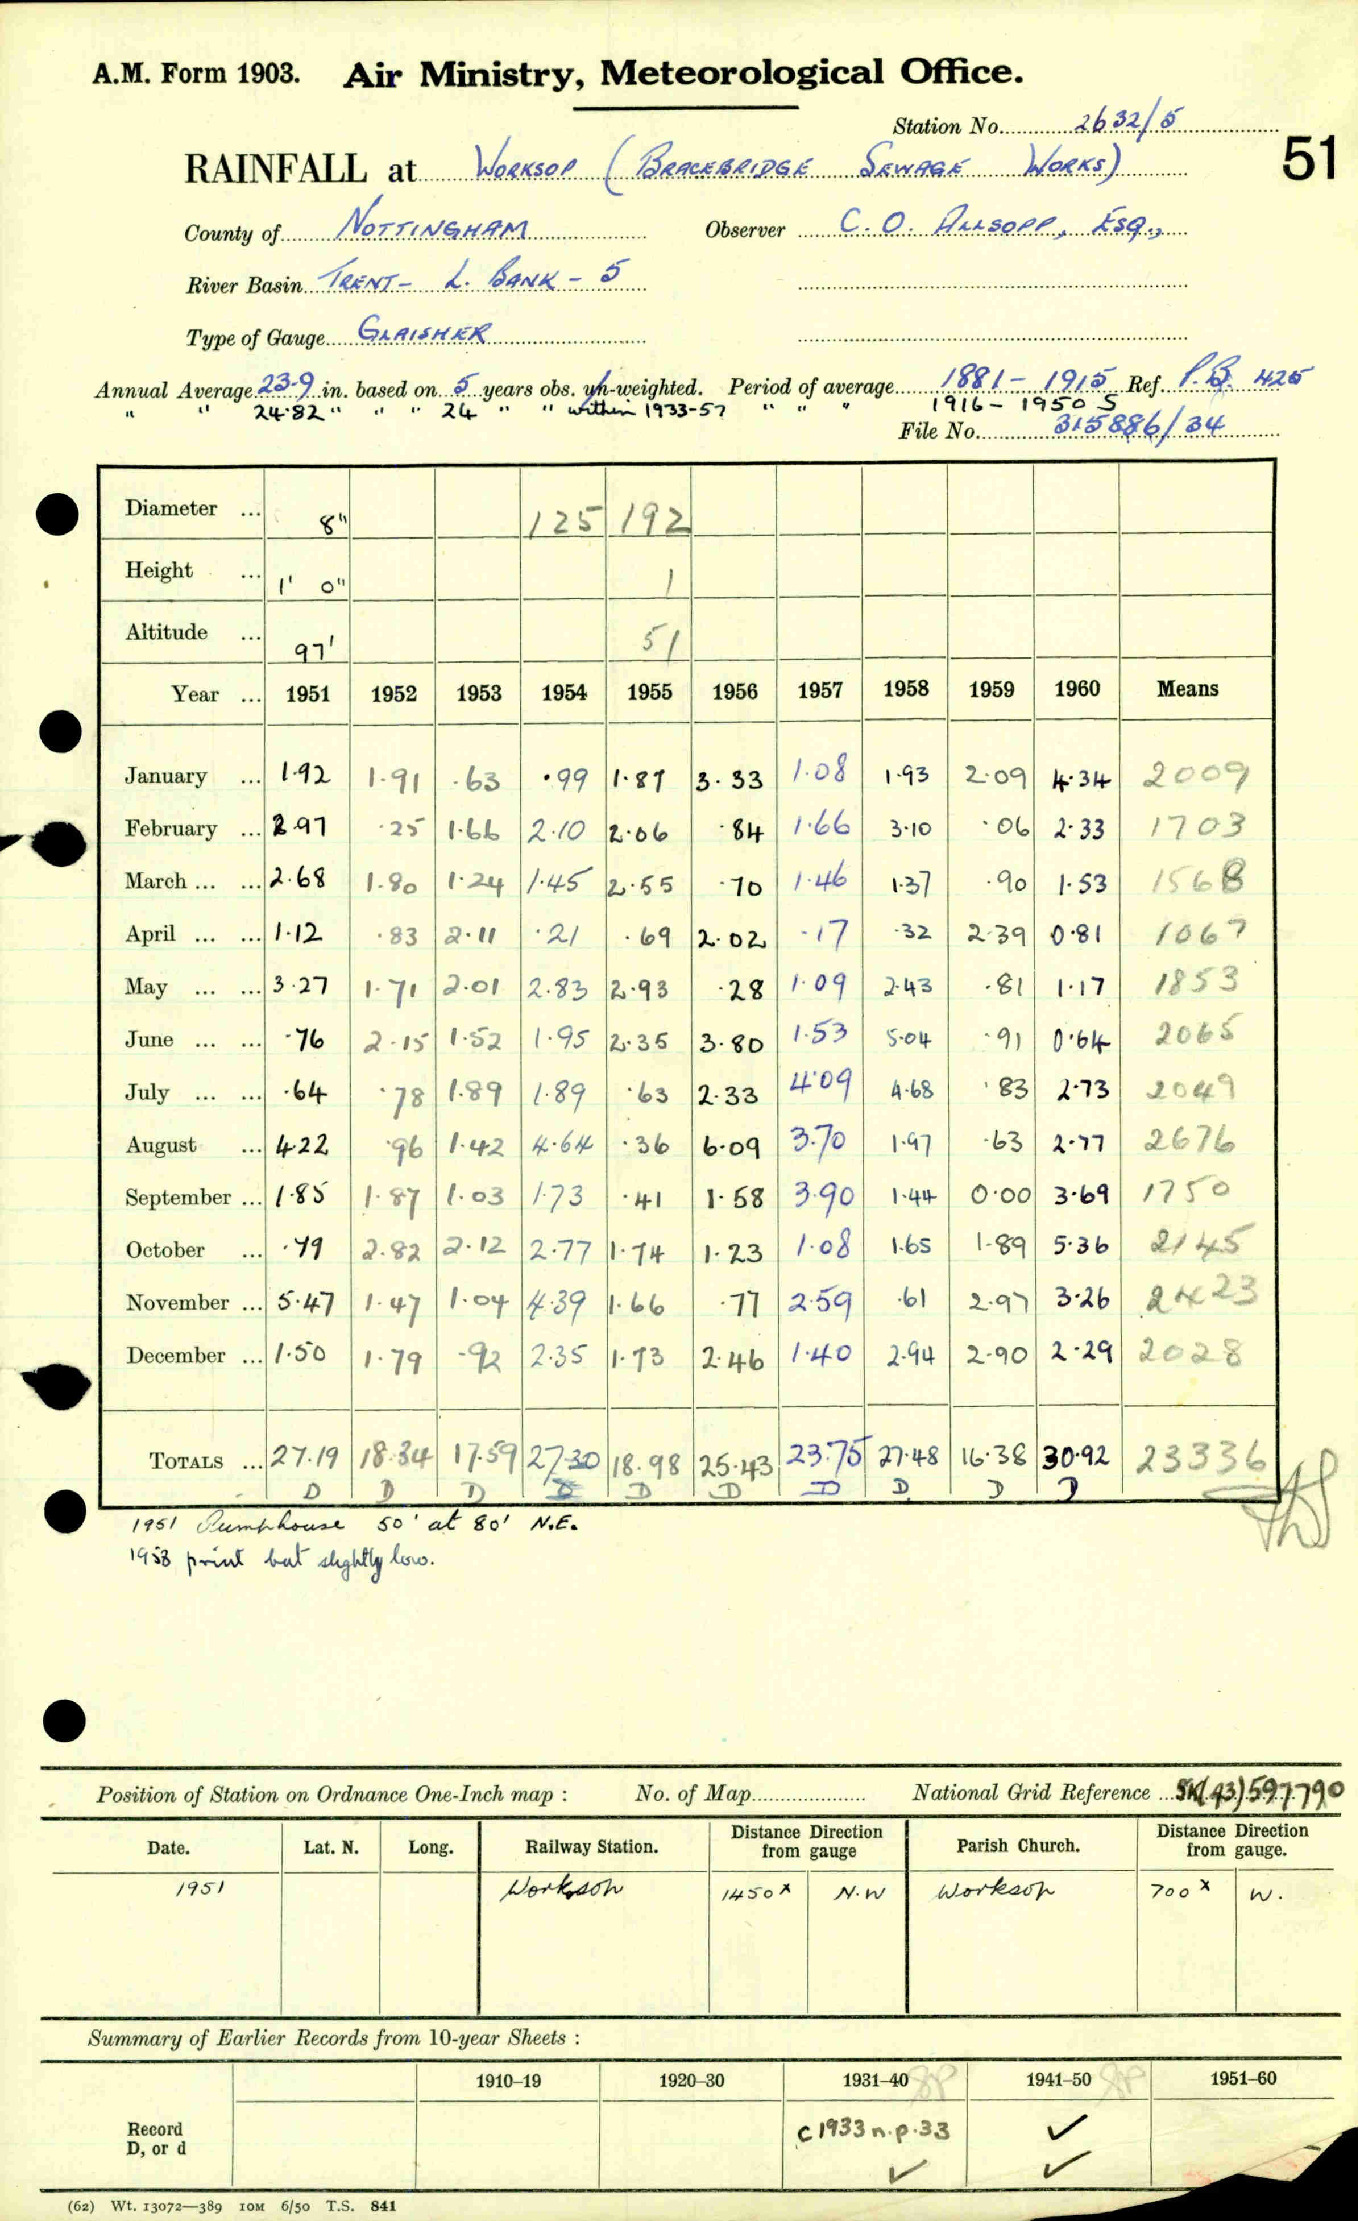 A.M. Form 1903. Air Ministry, Meteorological Office.
Station No. 2632/5
51
RAINFALL at Worksop (Bracebridge Sewage Works)
County of Nottingham Observer C. O. Allsopp, Esq.,
River Basin Trent - L. Bank - 5
Type of Gauge Glaisher
Annual Average 23.9 in. based on 5 years obs. un-weighted. Period of average 1881 - 1915 Ref. P.B. 425
" " 24.82 " " " 24 " " within 1933-57 " " " 1916 - 1950 S
File No. 315886/34
Diameter ... 8" 125 192
Height ... 1' 0" 1
Altitude ... 97' 51
Year ... 1951 1952 1953 1954 1955 1956 1957 1958 1959 1960 Means
January ... 1.92 1.91 .63 .99 1.87 3.33 1.08 1.93 2.09 4.34 2009
February ... 2.97 .25 1.66 2.10 2.06 .84 1.66 3.10 .06 2.33 1703
March ... ... 2.68 1.80 1.24 1.45 2.55 .70 1.46 1.37 .90 1.53 1568
April ... ... 1.12 .83 2.11 .21 .69 2.02 .17 .32 2.39 0.81 1067
May ... ... 3.27 1.71 2.01 2.83 2.93 .28 1.09 2.43 .81 1.17 1853
June ... ... .76 2.15 1.52 1.95 2.35 3.80 1.53 5.04 .91 0.64 2065
July ... ... .64 .78 1.89 1.89 .63 2.33 4.09 4.68 .83 2.73 2049
August ... 4.22 .96 1.42 4.64 .36 6.09 3.70 1.97 .63 2.77 2676
September ... 1.85 1.87 1.03 1.73 .41 1.58 3.90 1.44 0.00 3.69 1750
October ... .79 2.82 2.12 2.77 1.74 1.23 1.08 1.65 1.89 5.36 2145
November ... 5.47 1.47 1.04 4.39 1.66 .77 2.59 .61 2.97 3.26 2423
December ... 1.50 1.79 .92 2.35 1.73 2.46 1.40 2.94 2.90 2.29 2028
Totals ... 27.19 18.34 17.59 27.30 18.98 25.43 23.75 27.48 16.38 30.92 23336
D D D D D D D D D D
1951 Pumphouse 50' at 80' N.E.
1958 print but slightly low.
Position of Station on Ordnance One-Inch map : No. of Map National Grid Reference ... SK(43)597790
Date. Lat. N. Long. Railway Station. Distance Direction from gauge Parish Church. Distance Direction from gauge.
1951 Worksop 1450x N.W Worksop 700x W.
Summary of Earlier Records from 10-year Sheets :
1910-19 1920-30 1931-40 1941-50 1951-60
Record D, or d c1933 n.p.33 ✓
✓ ✓
(62) Wt. 13072—389 10M 6/50 T.S. 841